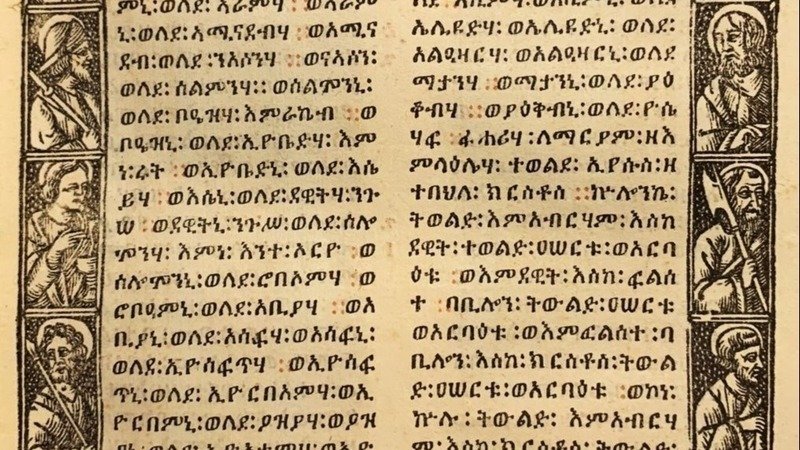 ምኒ፡ወለደ፡ አራምሃ ወአራም
ኒ፡ወለደ፡አሚናደብሃ ወአሚና
ደብ፡ወለደ ፡ነአሶንሃ ወናአሶን፡
ወለደ፡ ሰልሞንሃ፡፡ ወሰልሞንኒ፡
ወለደ፡ ቦዔዝሃ፡ እምራኬብ ወ
ቦዔዝኒ፡ ወለደ፡ ኢዮቤድሃ፡ እም
ነ፡ሩት ወኢዮቤድኒ፡ ወለደ፡ እሴ
ይሃ ወእሴኒ፡ወለደ፡ደዊትሃ፡ንጉ
ሠ ወደዊትኒ፡ንጉሠ፡ወለደ፡ሰሎ
ሞንሃ፡ እምነ፡ እንተ፡ ኦርዮ ወ
ሰሎሞንኒ፡ወለደ፡ሮብዓምሃ ወ
ሮቦዓምኒ፡ወለደ፡አቢያሃ ወአ
ቢያኒ፡ወለደ፡አሳፍሃ፡ወአሳፍኒ፡
ወለደ፡ኢዮሳፍጥሃ ወኢዮሳፍ
ጥኒ፡ወለደ፡ ኢዮርበአምሃ፡ወኢ
ዮርበምኒ፡ወለደ፡ያዝያሃ፡ወያዝ
ኤሊዩድሃ፡ ወኤሊዩድኒ፡ ወለደ፡
አልዓዛርሃ ወአልዓዛርኒ፡ ወለደ
ማታንሃ ወማታንኒ፡ወለደ፡ ያዕ
ቆብሃ ወያዕቅብኒ፡ወለደ፡ ዮሴ
ሃፍ ፈሐሪሃ ፡ለማርያም፡ ዘእ
ምኔሃ ተወልደ ፡ ኢየሱስ፡ ዘ
ተብህለ፡ ክርስቶስ ኵሎንኬ፡
ትወልድ፡ እምአብርሃም፡ እስከ
ደዊት፡ተወልድ፡ዐሠርቱ፡ወአርባ
ዕቱ ወእምደዊት፡እስከ፡ ፍልሰ
ተ ባቢሎን፡ትውልድ፡ዐሠርቱ
ወአርባዕቱ፡ ወእምፍልሰተ ፡ባ
ቢሎን፡ እስከ፡ ክርስቶስ፡ትውል
ድ፡ዐሠርቱ፡ወአርባዕቱ ወኮነ፡
ኵሉ ፡ ትውልድ፡ እምአብርሃ
ም፡ እስከ፡ ክርስቶስ ፡ ትውልድ፡